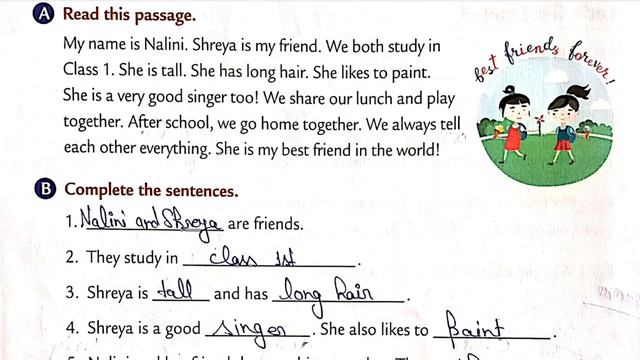 A Read this passage.
My name is Nalini. Shreya is my friend. We both study in
Class 1. She is tall. She has long hair. She likes to paint.
She is a very good singer too! We share our lunch and play
together. After school, we go home together. We always tell
each other everything. She is my best friend in the world!
best friends forever!
B Complete the sentences.
1. Nalini and Shreya are friends.
2. They study in class 1st.
3. Shreya is tall and has long hair.
4. Shreya is a good singer. She also likes to paint.